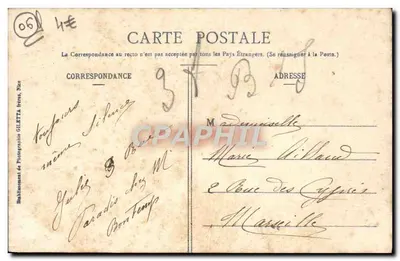 06 4€
CARTE POSTALE
La Correspondance au recto n'est pas acceptée par tous les Pays Étrangers. (Se renseigner à la Poste.)
CORRESPONDANCE
ADRESSE
3 B
Toujours
même silence
Julie
Paradis chez M
Bontemp
Mademoiselle
Marie
2 Rue des Cyprès
Marseille
Etablissement de Photographie GILETTA frères, Nice